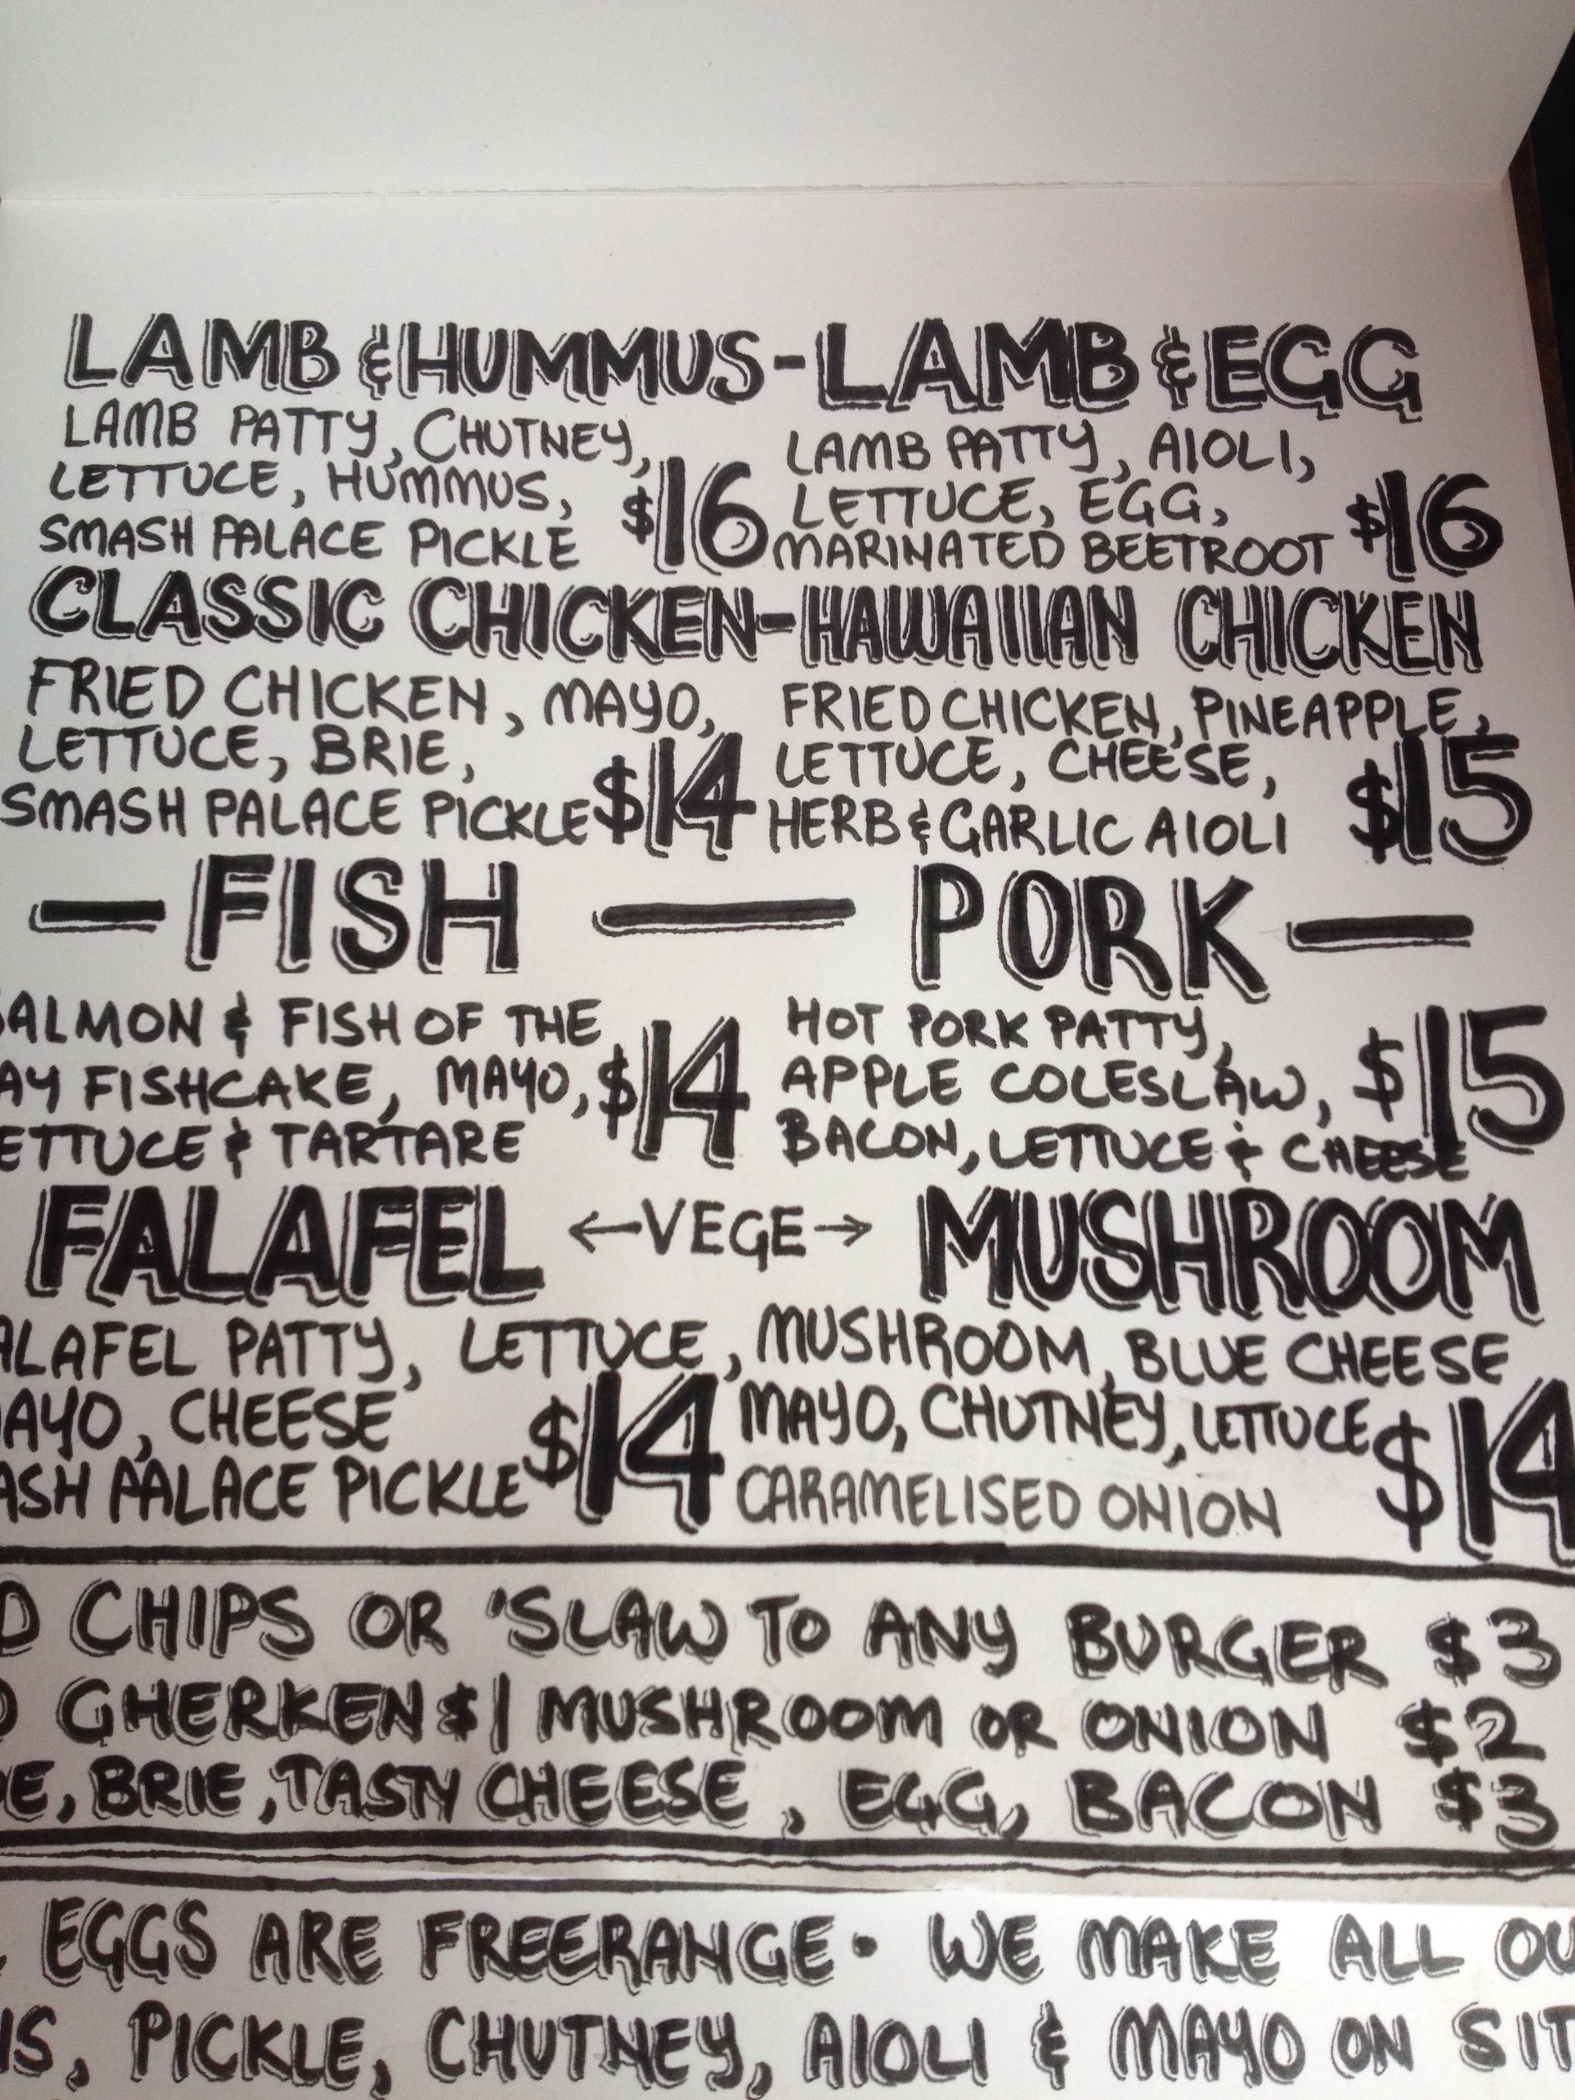 LAMB & HUMMUS - LAMB & EGG
LAMB PATTY, CHUTNEY,
LETTUCE, HUMMUS,
SMASH PALACE PICKLE
$16
LAMB PATTY, AIOLI,
LETTUCE, EGG,
MARINATED BEETROOT
$16
CLASSIC CHICKEN - HAWAIIAN CHICKEN
FRIED CHICKEN, MAYO,
LETTUCE, BRIE,
SMASH PALACE PICKLE
$14
FRIED CHICKEN, PINEAPPLE,
LETTUCE, CHEESE,
HERB & GARLIC AIOLI
$15
— FISH — PORK —
ALMON & FISH OF THE
AY FISHCAKE, MAYO,
ETTUCE & TARTARE
$14
HOT PORK PATTY,
APPLE COLESLAW,
BACON, LETTUCE & CHEESE
$15
FALAFEL ←VEGE→ MUSHROOM
ALAFEL PATTY, LETTUCE,
MAYO, CHEESE
ASH PALACE PICKLE
$14
MUSHROOM, BLUE CHEESE
MAYO, CHUTNEY, LETTUCE
CARAMELISED ONION
$14
D CHIPS OR 'SLAW TO ANY BURGER $3
GHERKEN $1 MUSHROOM OR ONION $2
E, BRIE, TASTY CHEESE, EGG, BACON $3
EGGS ARE FREERANGE • WE MAKE ALL OU
S, PICKLE, CHUTNEY, AIOLI & MAYO ON SIT